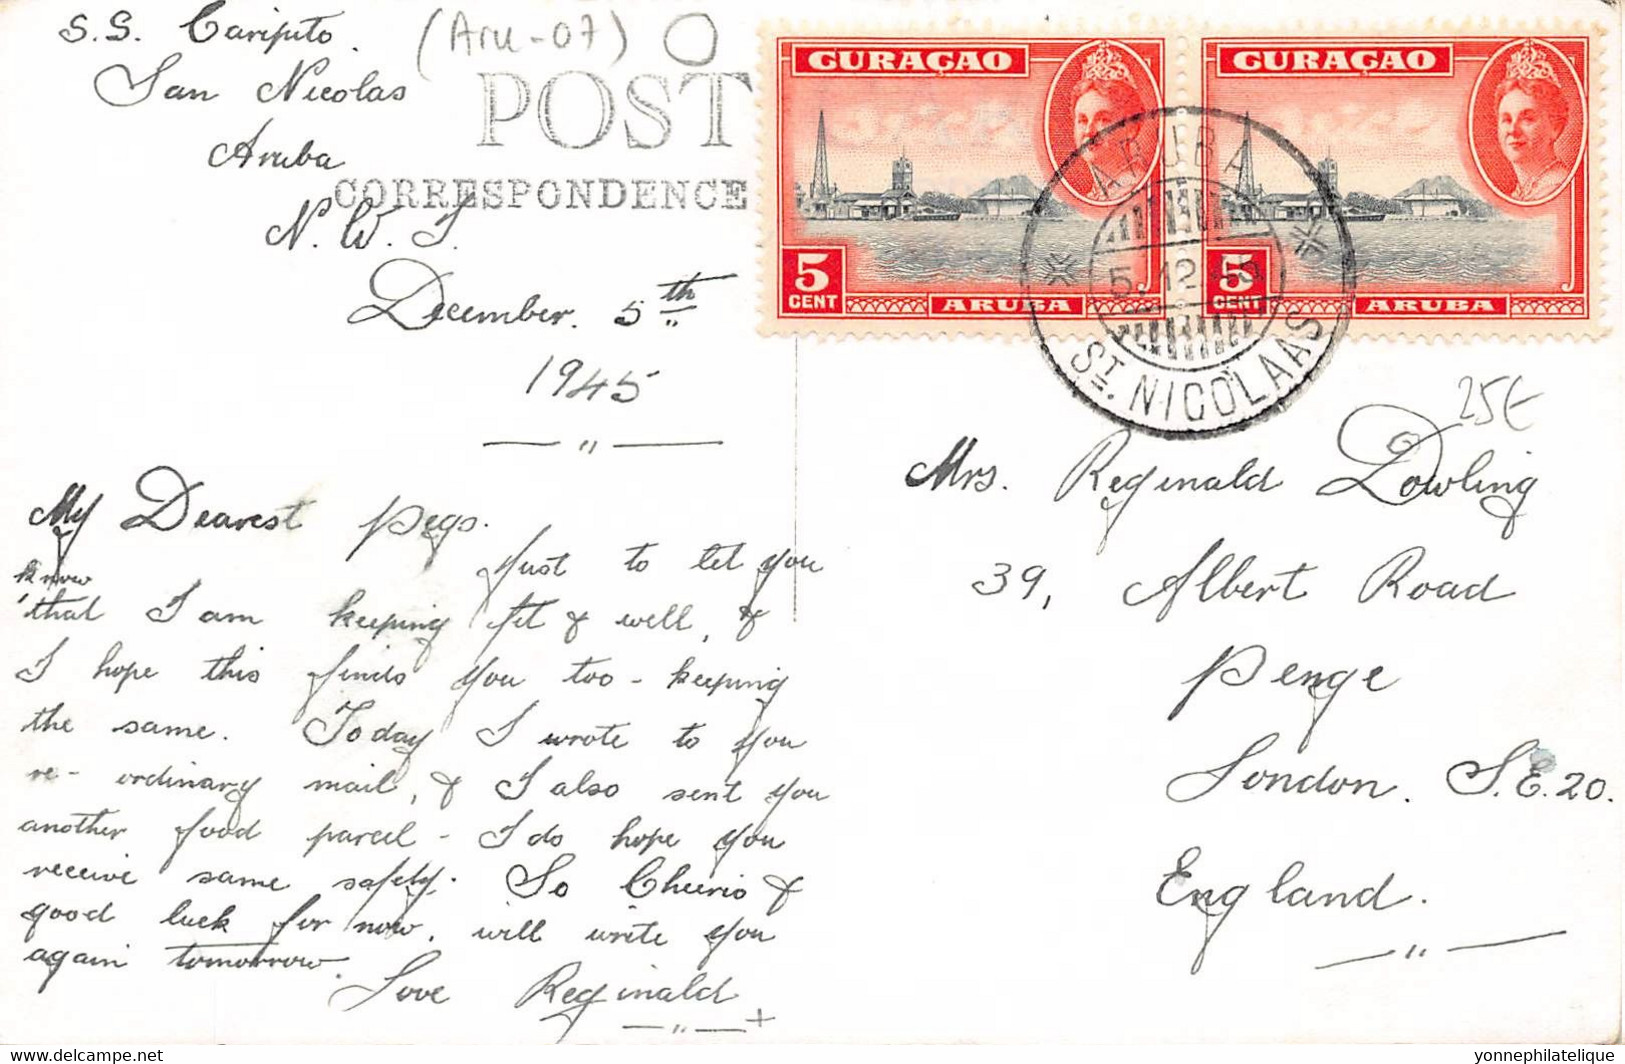 S.S. Caripito.
San Nicolas
Aruba
N.W.I.
December. 5th
1945
(Aru-07)
POST
CORRESPONDENCE
CURAÇAO
5
CENT
ARUBA
CURAÇAO
5
CENT
ARUBA
ARUBA
5.12.45
ST. NICOLAAS
25€
My Dearest Pegs.
Just to let you
know
that I am keeping fit & well, &
I hope this finds you too - keeping
the same. Today I wrote to you
re-ordinary mail, & I also sent you
another food parcel - I do hope you
receive same safely. So Cheerio &
good luck for now, will write you
again tomorrow.
Love Reginald
Mrs. Reginald Dowling
39, Albert Road
Penge
London. S.E.20.
England.
yonnephilatelique